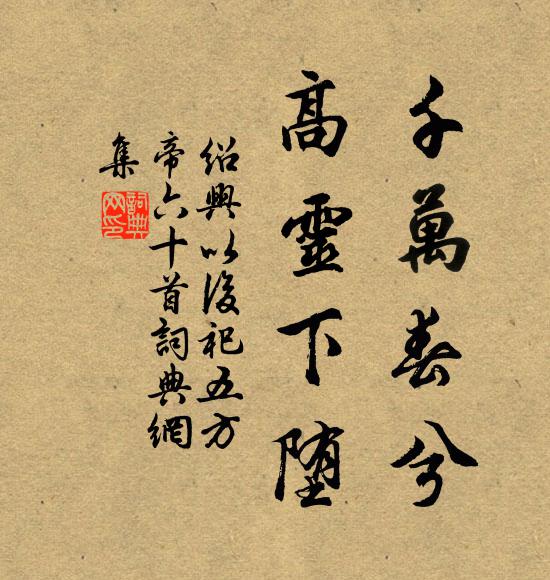 千萬春兮
高靈下堕
紹興以後祀五方
帝六十首詞典網
集
詞典
网印